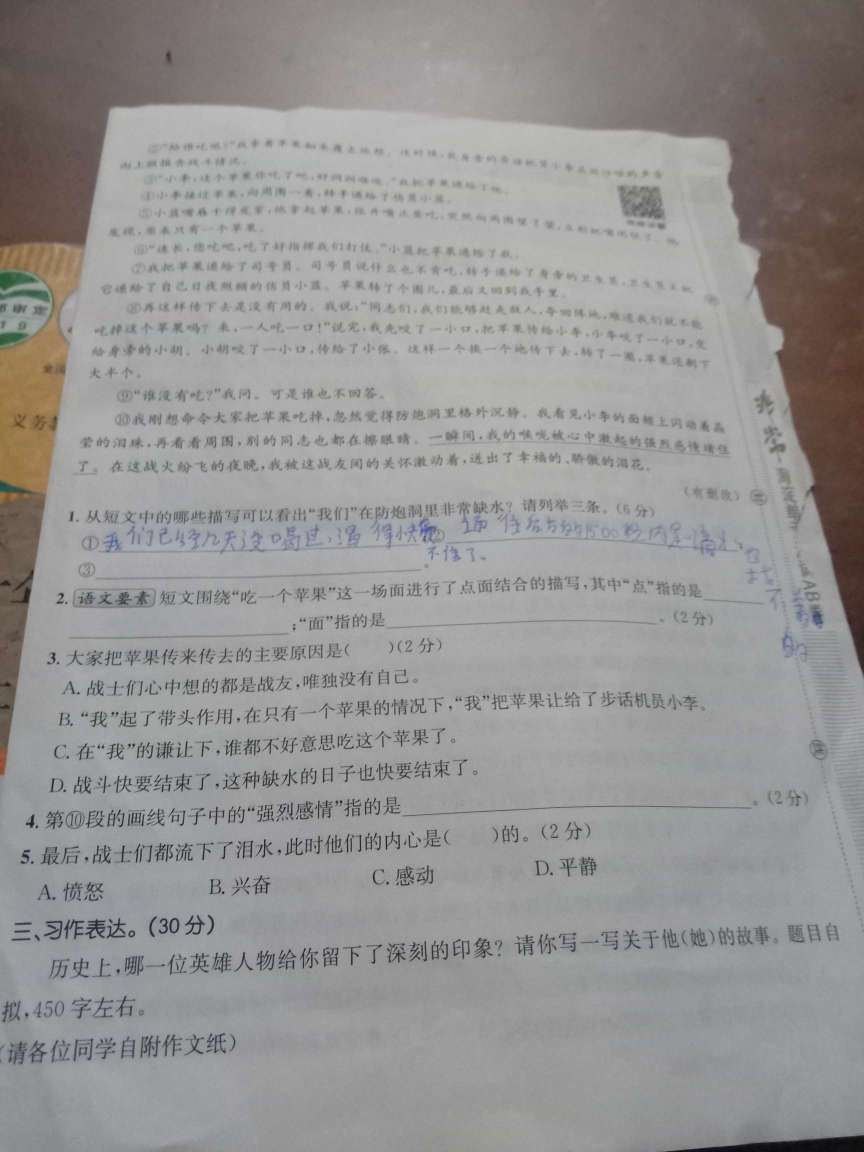 ②“给谁吃呢?”我拿着苹果翻来覆去地想。这时候,我身旁的
向上级报告战斗情况。
③“小李,这个苹果你吃了吧,好润润嗓子。”我把苹果递给了他。
④小李接过苹果,向周围一看,转手递给了伤员小蓝。
⑤小蓝嘴唇干得发紫,他拿起苹果,张开嘴正要吃,突然向四周望了望,立刻把嘴闭住了。他
发现,原来只有一个苹果。
⑥“连长,您吃吧,吃了好指挥我们打仗。”小蓝把苹果递给了我。
⑦我把苹果递给了司号员。司号员说什么也不肯吃,转手递给了身旁的卫生员,卫生员又把
它递给了自己日夜照顾的伤员小蓝。苹果转了个圈儿,最后又回到我手里。
⑧再这样传下去是没有用的。我说:“同志们,我们能够赶走敌人,夺回阵地,难道我们就不能
吃掉这个苹果吗?来,一人吃一口!”说完,我先咬了一小口,把苹果传给小李,小李咬了一小口,交
给身旁的小胡。小胡咬了一小口,传给了小张。这样一个挨一个地传下去,转了一圈,苹果还剩下
大半个。
⑨“谁没有吃?”我问。可是谁也不回答。
⑩我刚想命令大家把苹果吃掉,忽然觉得防炮洞里格外沉静。我看见小李的面颊上闪动着晶
莹的泪珠,再看看周围,别的同志也都在擦眼睛。一瞬间,我的喉咙被心中激起的强烈感情堵住
了。在这战火纷飞的夜晚,我被这战友间的关怀激动着,迸出了幸福的、骄傲的泪花。
(有删改)
1. 从短文中的哪些描写可以看出“我们”在防炮洞里非常缺水?请列举三条。(6分)
①我们已经几天没喝过
不住了。
③
2. 语文要素 短文围绕“吃一个苹果”这一场面进行了点面结合的描写,其中“点”指的是
;“面”指的是 。(2分)
3. 大家把苹果传来传去的主要原因是( )(2分)
A. 战士们心中想的都是战友,唯独没有自己。
B. “我”起了带头作用,在只有一个苹果的情况下,“我”把苹果让给了步话机员小李。
C. 在“我”的谦让下,谁都不好意思吃这个苹果了。
D. 战斗快要结束了,这种缺水的日子也快要结束了。
4. 第⑩段的画线句子中的“强烈感情”指的是 。(2分)
5. 最后,战士们都流下了泪水,此时他们的内心是( )的。(2分)
A. 愤怒 B. 兴奋 C. 感动 D. 平静
三、习作表达。(30分)
历史上,哪一位英雄人物给你留下了深刻的印象?请你写一写关于他(她)的故事。题目自
拟,450字左右。
(请各位同学自附作文纸)
审定
19
义务